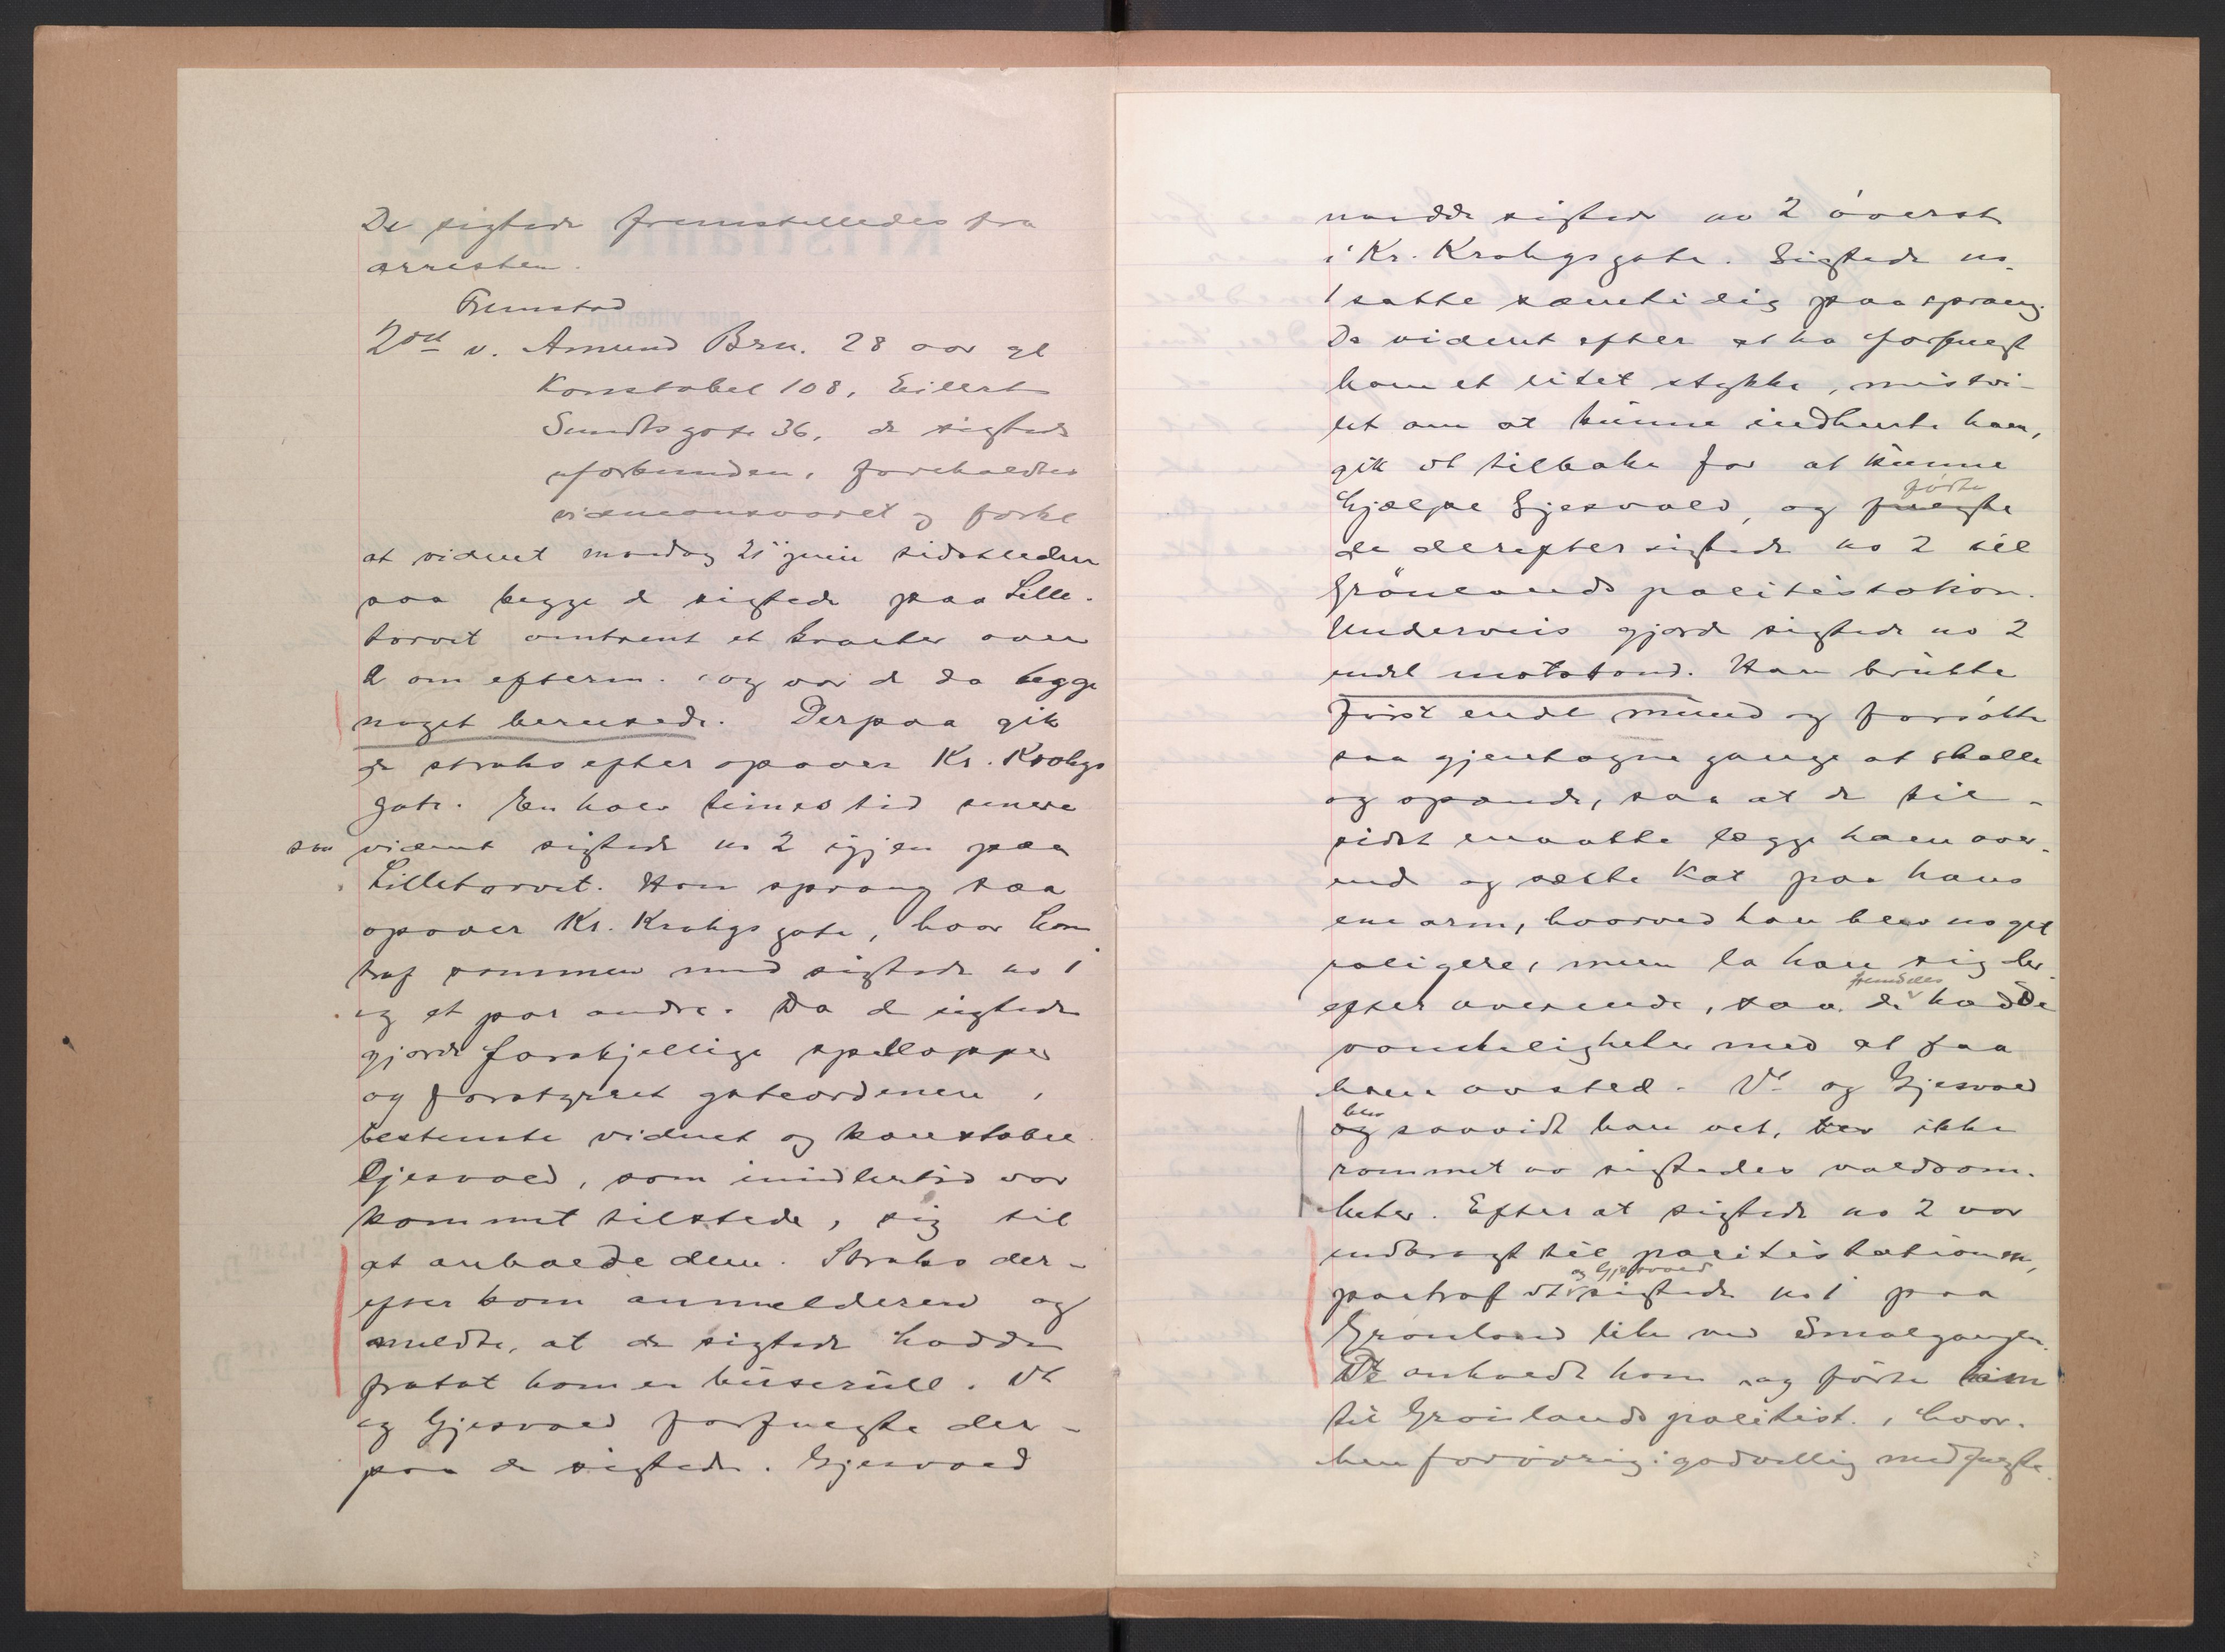 De sigtede fremstilledes fra
arresten.
Fremstod
2det v. Amund Bru. 28 aar gl
Konstabel 108, Eilert
Sundts gate 36, de sigtede
uforbunden, foreholdtes
vidneansvaret og forkl
at vidnet mandag 21 juni sidstleden
saa begge de sigtede paa Lille-
torvet omtrent et kvarter over
2 om efterm. og var de da begge
noget berusede. Derpaa gik
de straks efter opover Kr. Krohgs
gate. En halv times tid senere
saa vidnet sigtede no 2 igjen paa
Lilletorvet. Han sprang saa
opover Kr. Krohgs gate, hvor han
traf sammen med sigtede no 1
og et par andre. Da de sigtede
gjorde forskjellige spillopper
og forstyrret gateordenen,
bestemte vidnet og konstabel
Gjesvold, som imidlertid var
kommet tilstede, sig til
at anholde dem. Straks der-
efter kom anmelderen og
meldte, at de sigtede hadde
fratat ham en huserull. Vt
og Gjesvold forfulgte der-
paa de sigtede. Gjesvold
naadde sigtede no 2 øverst
i Kr. Krohgs gate. Sigtede no
1 satte samtidig paa sprang.
Da vidnet efter at ha forfulgt
ham et litet stykke, mistvi-
let om at kunne indhente ham,
gik vt tilbake for at kunne
førte
hjælpe Gjesvold, og fulgte
de derefter sigtede no 2 til
Grønlands politistation.
Underveis gjorde sigtede no 2
endel motstand. Han brukte
først endel mund og forsøkte
saa gjentagne gange at skalle
og spænde, saa at de til-
sidst maatte lægge ham over-
ende og sætte Kat paa hans
ene arm, hvorved han blev noget
roligere, men la han sig her-
fremdeles
efter overende, saa de hadde
vanskeligheter med at faa
ham avsted. Vt og Gjesvold
blev
og saavidt han vet, blev ikke
rammet av sigtedes voldsom-
heter. Efter at sigtede no 2 var
indbragt til politistationen,
og Gjesvold
paatraf vt sigtede no 1 paa
Grønland like ved Smalgangen.
Vt anholdt ham og førte ham
til Grønlands politist., hvor-
hen forøvrig godvillig medfulgte.